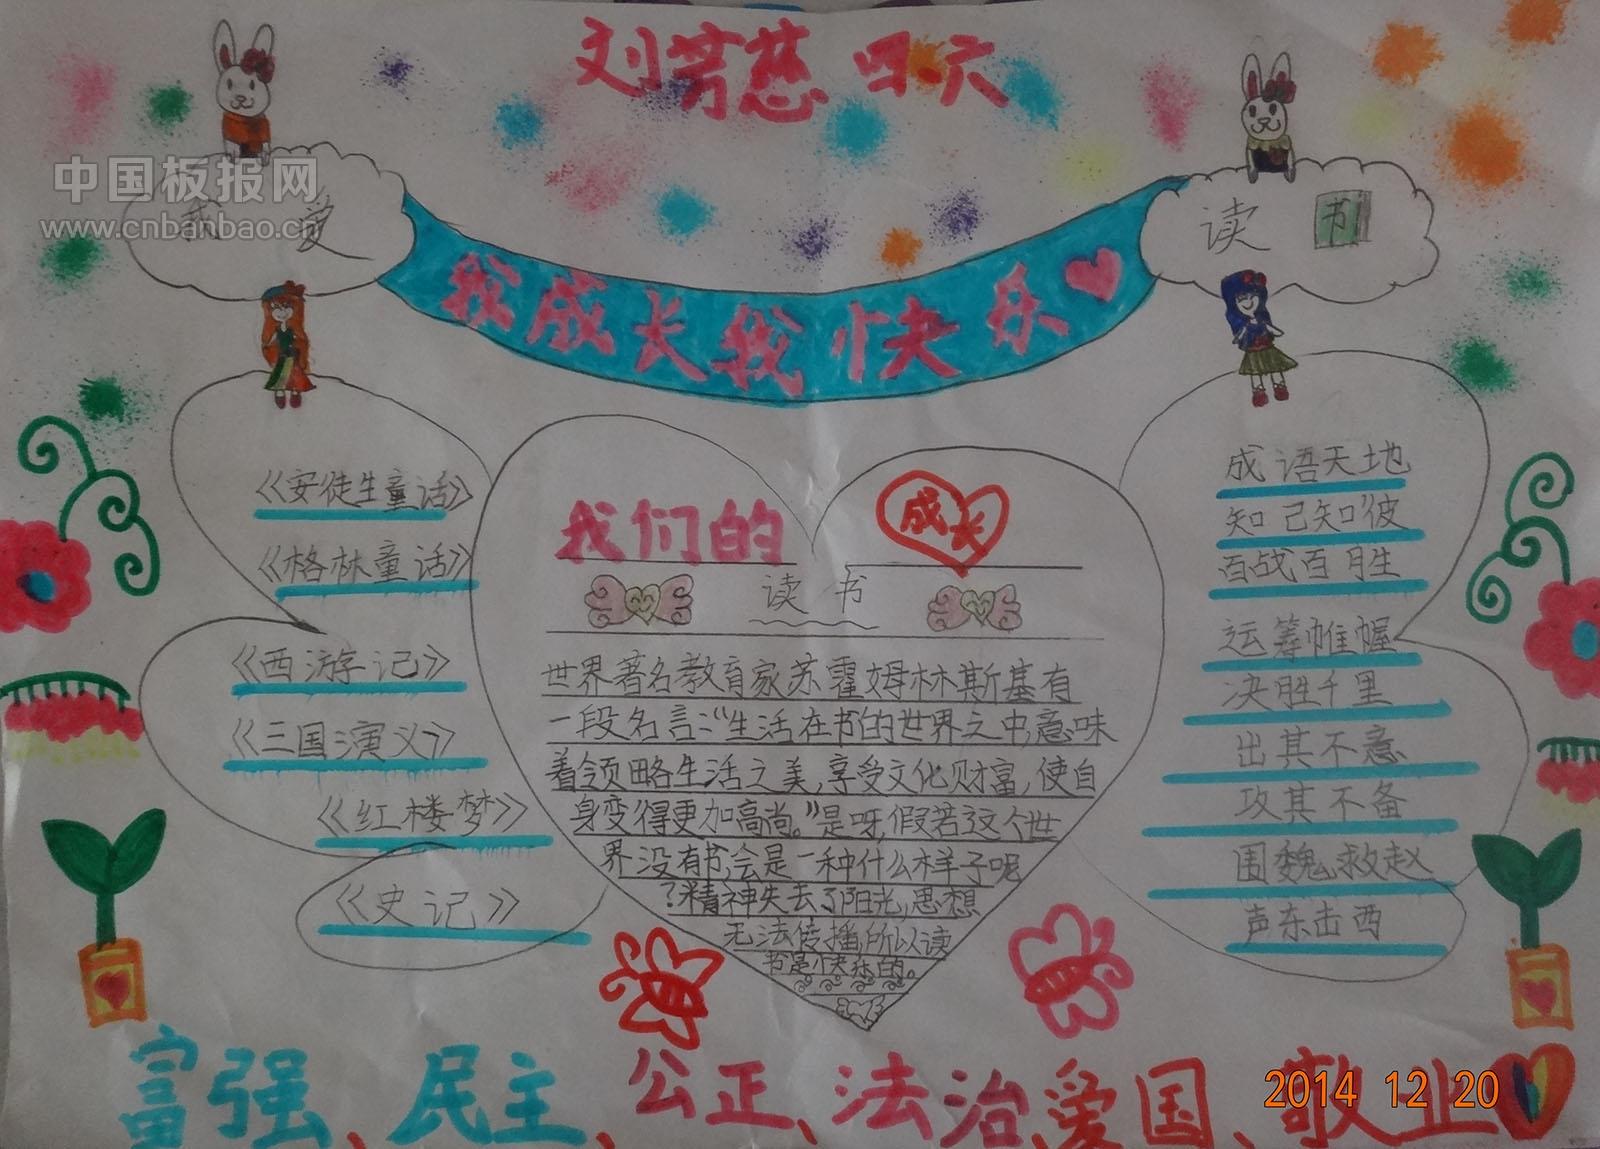 刘芳慈 四.六
中国板报网
www.cnbanbao.cn
我 爱
读 书
我成长我快乐
《安徒生童话》
《格林童话》
《西游记》
《三国演义》
《红楼梦》
《史记》
我们的 成长
读 书
世界著名教育家苏霍姆林斯基有
一段名言:“生活在书的世界之中,意味
着领略生活之美,享受文化财富,使自
身变得更加高尚。”是呀,假若这个世
界没有书,会是一种什么样子呢
?精神失去了阳光,思想
无法传播,所以读
书是快乐的。
成语天地
知己知彼
百战百胜
运筹帷幄
决胜千里
出其不意
攻其不备
围魏救赵
声东击西
富强、民主、公正、法治、爱国、敬业
2014 12 20